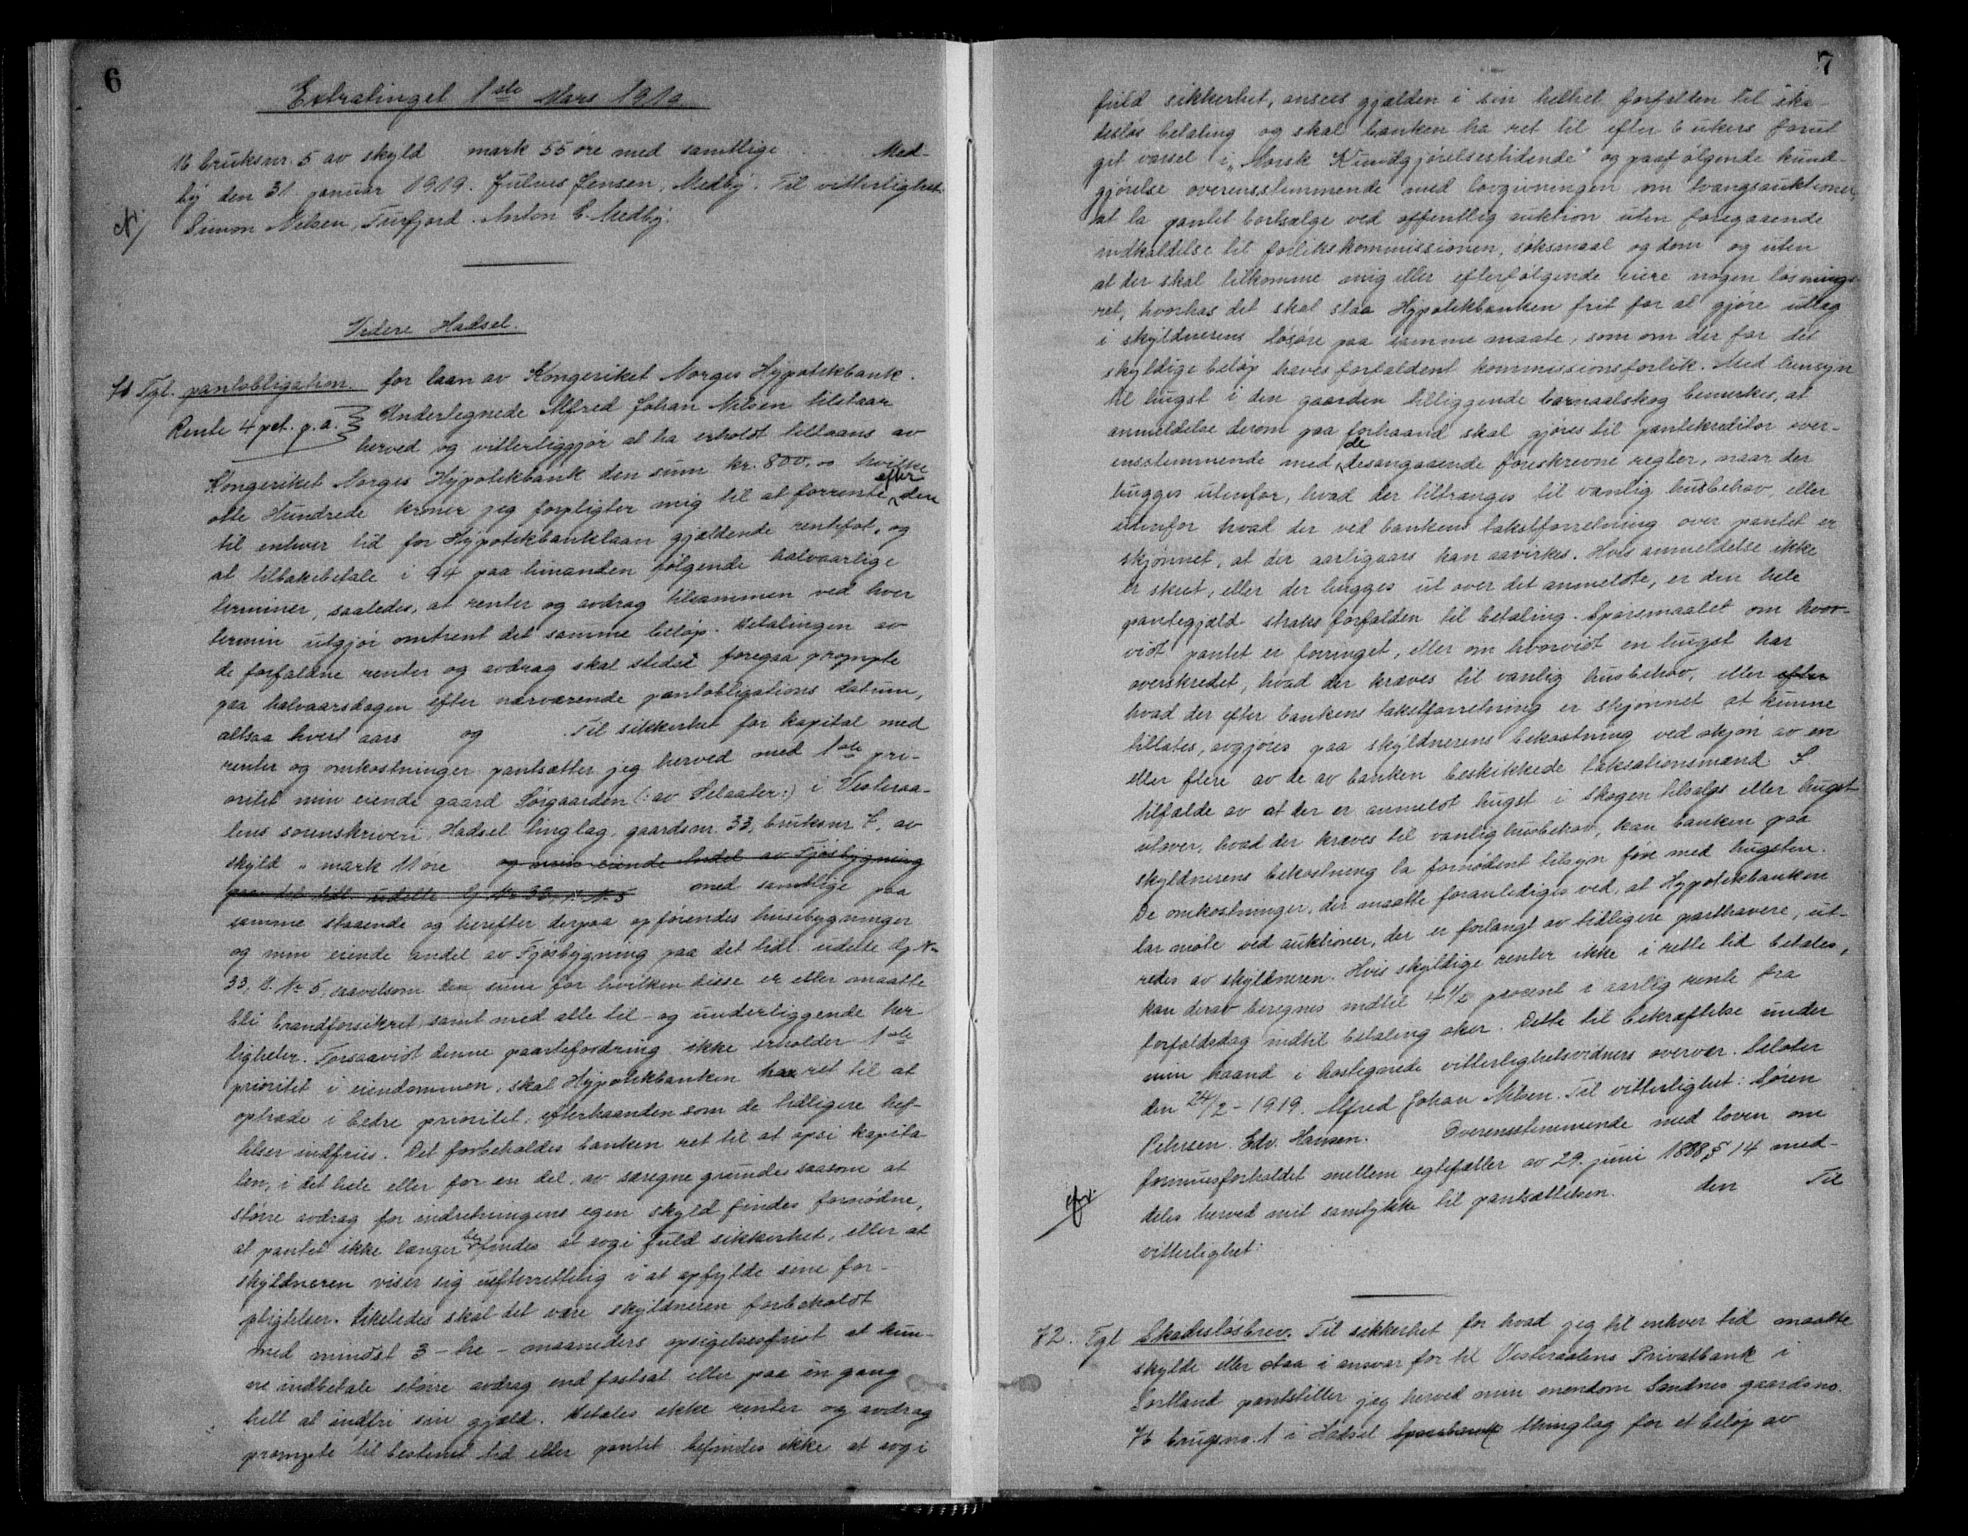 6
Extratinget 1ste Mars 1919
16 bruksnr. 5 av skyld mark 55 øre med samtlige. Med-
by den 31 januar 1919. Julius Jensen, Medby. Til vitterlighet
Simon Nilsen, Turfjord. Anton E. Medby.
Videre Hadsel.
71 Tgl. pantobligation. for laan av Kongeriket Norges Hypotekbank.
Rente 4 pct. p.a. } Undertegnede Alfred Johan Nilsen tilstaar
herved og vitterliggjør at ha erholdt tillaans av
Kongeriket Norges Hypotekbank den sum kr. 800,00 hvilke
otte Hundrede kroner jeg forpligter mig til at forrente efter den
til enhver tid for Hypotekbanklaan gjældende rentefot, og
at tilbakebetale i 94 paa hinanden følgende halvaarlige
terminer, saaledes, at renter og avdrag tilsammen ved hver
termin utgjør omtrent det samme beløp. Betalingen av
de forfaldne renter og avdrag skal stedse foregaa prompte
paa halvaarsdagen efter nærværende pantobligations datum,
altsaa hvert aars og Til sikkerhet for kapital med
renter og omkostninger pantsætter jeg herved med 1ste pri-
oritet min eiende gaard Sørgaarden (: av Selaater:) i Vesteraa-
lens sorenskriveri, Hadsel tinglag, gaardsnr. 33, bruksnr 7, av
skyld " mark 11 øre og min eiende Andel av Fjøsbygning
paa det tidl. udelte G. Nr 33, B. N. 5 med samtlige paa
samme staaende og herefter derpaa opførendes husebygninger
og min eiende andel av Fjøsbygning paa det tidl. udelte G. Nr
33, B. Nr 5, saavelsom den sum for hvilken disse er eller maatte
bli brandforsikret samt med alle til- og underliggende her-
ligheter. Forsaavidt denne pantefordring ikke erholder 1ste
prioritet i eiendommen, skal Hypotekbanken ha ret til at
optræde i bedre prioritet, efterhaanden som de tidligere hef-
telser indfries. Det forbeholdes banken ret til at opsi kapita-
len, i det hele eller for en del, av særegne grunde saasom at
større avdrag for indretningens egen skyld findes fornødne,
at pantet ikke længer befindes at avgi fuld sikkerhet, eller at
skyldneren viser sig uefterrettelig i at opfylde sine for-
pligtelser. Likeledes skal det være skyldneren forbeholdt
med mindst 3 - tre - maaneders opsigelsesfrist at kun-
ne indbetale større avdrag end fastsat eller paa en gang
helt at indfri sin gjæld. Betales ikke renter og avdrag
prompte til bestemt tid eller pantet befindes ikke at avgi
7
fuld sikkerhet, ansees gjælden i sin helhet forfalden til ska-
desløs betaling og skal banken ha ret til efter 6 ukers forut
git varsel i „Norsk Kundgjørelsestidende" og paafølgende kund-
gjørelse overensstemmende med lovgivningen om tvangsauktioner,
at la pantet bortsælge ved offentlig auktion uten foregaaende
indkaldelse til forlikskommissionen, søksmaal og dom og uten
at der skal tilkomme mig eller efterfølgende eiere nogen løsnings-
ret, hvorhos det skal staa Hypotekbanken frit for at gjøre utlæg
i skyldnerens løsøre paa samme maate, som om der for det
skyldige beløp haves forfaldent kommissionsforlik. Med hensyn
til hugst i den gaarden tilliggende barnaalskog bemerkes, at
anmeldelse derom paa forhaand skal gjøres til pantekreditor over-
ensstemmende med de desangaaende foreskrevne regler, naar der
hugges utenfor, hvad der tiltrænges til vanlig husbehov, eller
utenfor hvad der ved bankens takstforretning over pantet er
skjønnet, at der aarligaars kan aavirkes. Hvis anmeldelse ikke
er skeet, eller der hugges ut over det anmeldte, er den hele
pantegjæld straks forfalden til betaling. Spørsmaalet om hvor-
vidt pantet er forringet, eller om hvorvidt en hugst har
overskredet, hvad der kræves til vanlig husbehov, eller efter
hvad der efter bankens takstforretning er skjønnet at kunne
tillates, avgjøres paa skyldnerens bekostning ved skjøn av en
eller flere av de av banken beskikkede taksationsmænd I
tilfælde av at der er anmeldt hugst i skogen tilsalgs eller hugst
utover, hvad der kræves til vanlig husbehov, kan banken paa
skyldnerens bekostning la fornødent tilsyn føre med hugsten.
De omkostninger, der maatte foranlediges ved, at Hypotekbanken
lar møte ved auktioner, der er forlangt av tidligere panthavere, ut-
redes av skyldneren. Hvis skyldige renter ikke i rette tid betales,
kan derav beregnes indtil 4 1/2 procent i aarlig rente fra
forfaldsdag indtil betaling sker. Dette til bekræftelse under
min haand i hostegnede vitterlighetsvidners overvær. Selaater
den 24/2 - 1919. Alfred Johan Nilsen. Til vitterlighet: Søren
Petersen. Edv. Hansen. Overensstemmende med loven om
formuesforholdet mellem egtefæller av 29. juni 1888 § 14 med-
deles herved mit samtykke til pantsættelsen. den Til
vitterlighet:
72. Tgl Skadesløsbrev. Til sikkerhet for hvad jeg til enhver tid maatte
skylde eller staa i ansvar for til Vesteraalens Privatbank i
Sortland pantstiller jeg herved min eiendom Sandnes gaardsno.
76 brugsno. 1 i Hadsel thinglag for et beløp av